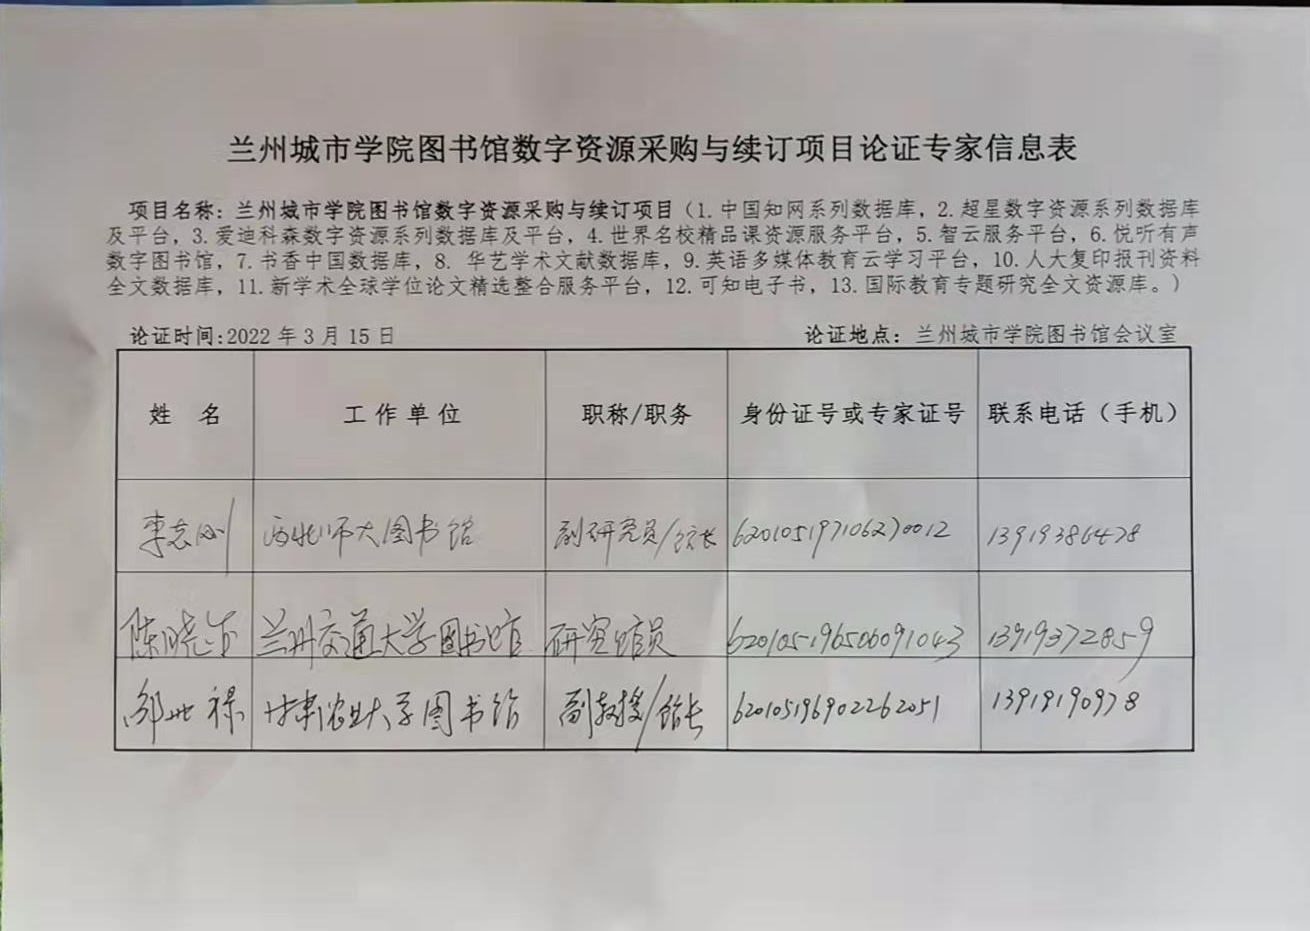 兰州城市学院图书馆数字资源采购与续订项目论证专家信息表
项目名称：兰州城市学院图书馆数字资源采购与续订项目（1.中国知网系列数据库，2.超星数字资源系列数据库
及平台，3.爱迪科森数字资源系列数据库及平台，4.世界名校精品课资源服务平台，5.智云服务平台，6.悦听有声
数字图书馆，7.书香中国数据库，8. 华艺学术文献数据库，9.英语多媒体教育云学习平台，10.人大复印报刊资料
全文数据库，11.新学术全球学位论文精选整合服务平台，12.可知电子书，13.国际教育专题研究全文资源库。）
论证时间:2022 年 3 月 15 日 论证地点：兰州城市学院图书馆会议室
姓 名 工 作 单 位 职称/职务 身份证号或专家证号 联系电话（手机）
李志刚 西北师大图书馆 副研究员/馆长 620105197106270012 13919386478
陈晓 兰州交通大学图书馆 研究馆员 620105196506091043 13919372859
邹世禄 甘肃农业大学图书馆 副教授/馆长 620105196902262051 13919190978